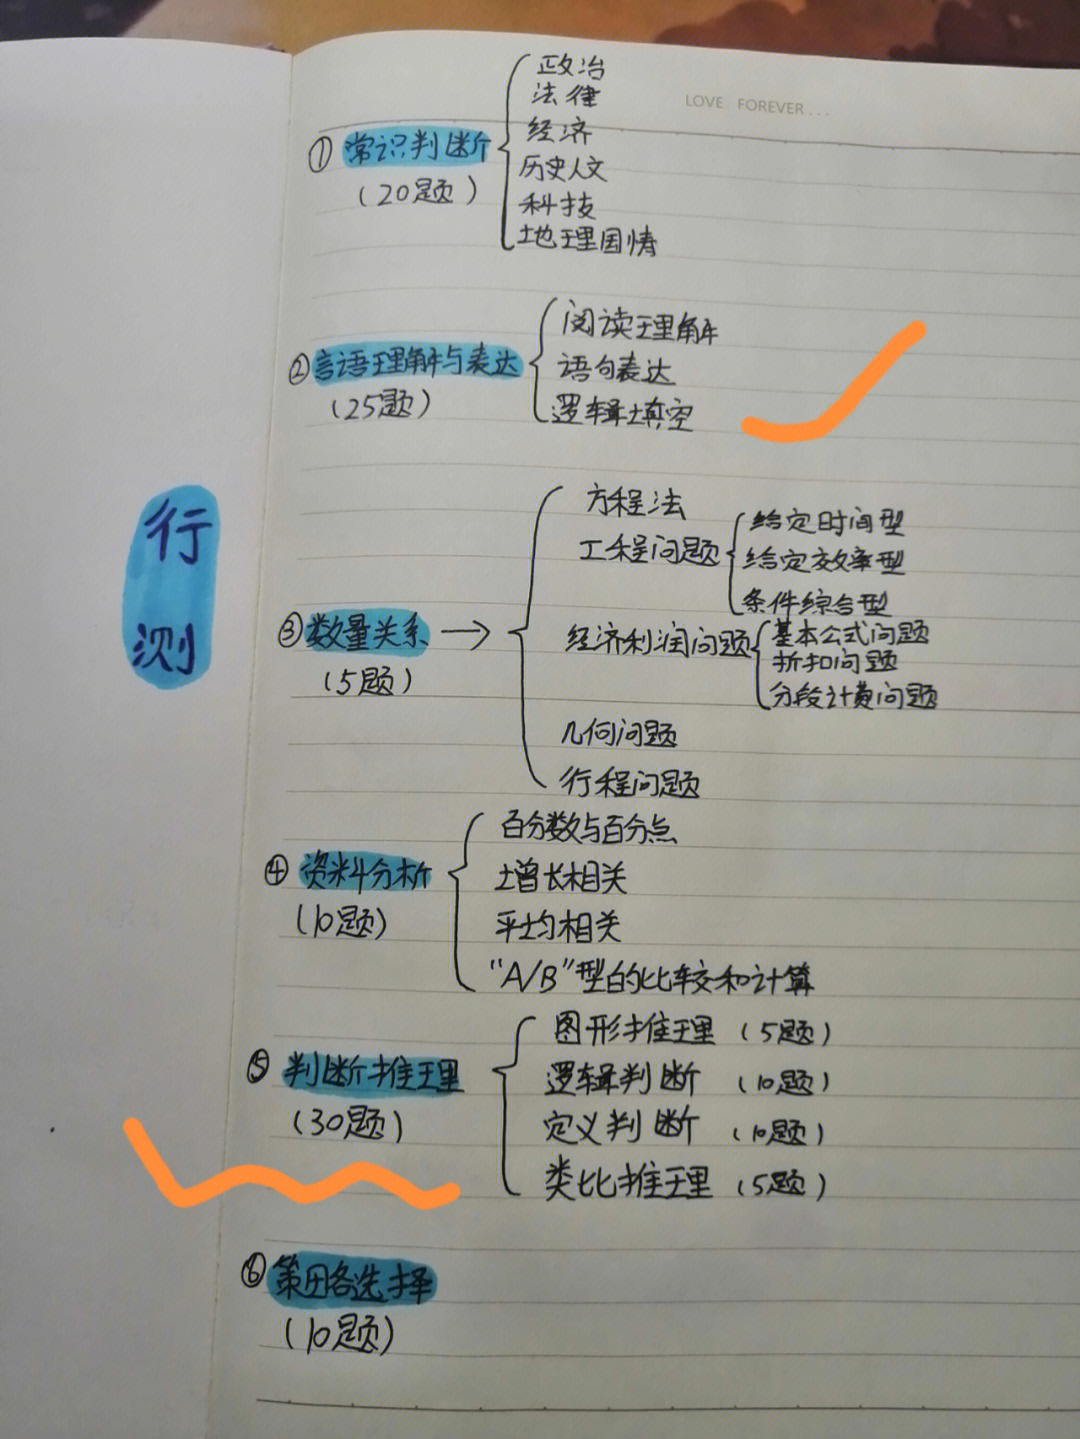 LOVE FOREVER...
行测
① 常识判断
(20题)
政治
法律
经济
历史人文
科技
地理国情
② 言语理解与表达
(25题)
阅读理解
语句表达
逻辑填空
③ 数量关系 →
(5题)
方程法
工程问题
给定时间型
给定效率型
条件综合型
经济利润问题
基本公式问题
折扣问题
分段计费问题
几何问题
行程问题
④ 资料分析
(10题)
百分数与百分点
增长相关
平均相关
“A/B”型的比较和计算
⑤ 判断推理
(30题)
图形推理 (5题)
逻辑判断 (10题)
定义判断 (10题)
类比推理 (5题)
⑥ 策略选择
(10题)